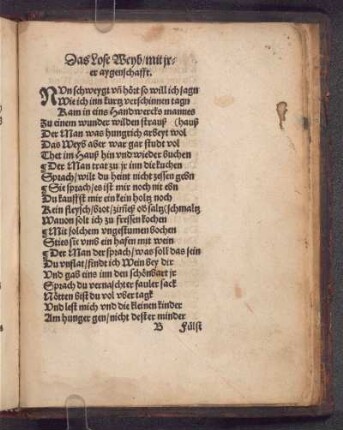 Das Lose Weyb/ mit jr-
er aygenschafft.
NUn schweygt vñ hört so will ich sagn
Wie ich inn kurtz verschinnen tagn
Kam in eins Handwercks mannes
Zu einem wunder wilden strauß (hauß
Der Man was hungrich arbeyt wol
Das Weyb aber war gar studt vol
Thet im Hauß hin vnd wieder suchen
¶ Der Man trat zu jr inn die kuchen
Sprach/ wilt du heint nicht zessen gebn
¶ Sie sprach/ es ist mir noch nit ebn
Du kauffst mir ein kein holtz noch
Kein fleysch/ brot/ saltz/ schmaltz
Wauon solt ich zu fressen kochen
¶ Mit solchem vngestumen bochen
Sties sie vmb ein hafen mit wein
¶ Der Man der sprach/ was soll das sein
Du vnflat/ find ich Wein bey dir
Vnd gab eins inn den schönbart jr
Sprach du vernaschter fauler sack
Nötten bist du vol vber tagk
Vnd lest mich vnd die kleinen kinder
Am hunger gen/ nicht dester minder
B Fülst